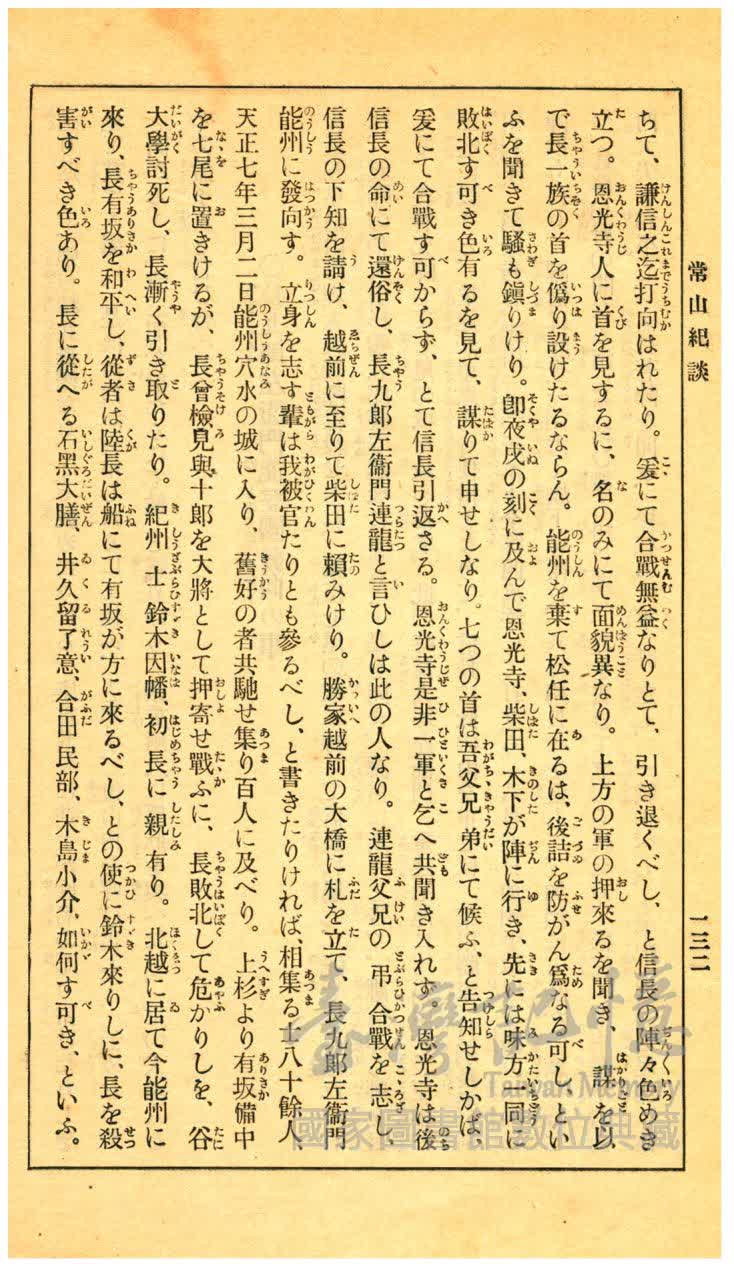 常山紀談
一三二
ちて、謙信之迄打向はれたり。爰にて合戰無益なりとて、引き退くべし、と信長の陣々色めき
立つ。恩光寺人に首を見するに、名のみにて面貌異なり。上方の軍の押來るを聞き、謀を以
で長一族の首を僞り設けたるならん。能州を棄て松任に在るは、後詰を防がん爲なる可し、とい
ふを聞きて騷も鎭りけり。卽夜戌の刻に及んで恩光寺、柴田、木下が陣に行き、先には味方一同に
敗北す可き色有るを見て、謀りて申せしなり。七つの首は吾父兄弟にて候ふ、と告知せしかば、
爰にて合戰す可からず、とて信長引返さる。恩光寺是非一軍と乞へ共聞き入れず。恩光寺は後
信長の命にて還俗し、長九郎左衞門連龍と言ひしは此の人なり。連龍父兄の弔合戰を志し、
信長の下知を請け、越前に至りて柴田に賴みけり。勝家越前の大橋に札を立て、長九郎左衞門
能州に發向す。立身を志す輩は我被官たりとも參るべし、と書きたりければ、相集る士八十餘人、
天正七年三月二日能州穴水の城に入り、舊好の者共馳せ集り百人に及べり。上杉より有坂備中
を七尾に置きけるが、長曾檢見與十郎を大將として押寄せ戰ふに、長敗北して危かりしを、谷
大學討死し、長漸く引き取りたり。紀州士鈴木因幡、初長に親有り。北越に居て今能州に
來り、長有坂を和平し、從者は陸長は船にて有坂が方に來るべし、との使に鈴木來りしに、長を殺
害すべき色あり。長に從へる石黑大膳、井久留了意、合田民部、木島小介、如何す可き、といふ。
臺灣記憶
Taiwan Memory
國家圖書館數位典藏